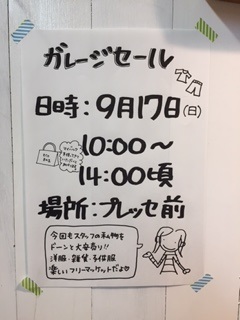 ガレージセール
日時：9月17日(日)
10:00〜
14:00頃
場所：プレッセ前
今回もスタッフの私物を
ドーンと大安売り!!
洋服・雑貨・子供服
楽しいフリーマーケットだよ♡